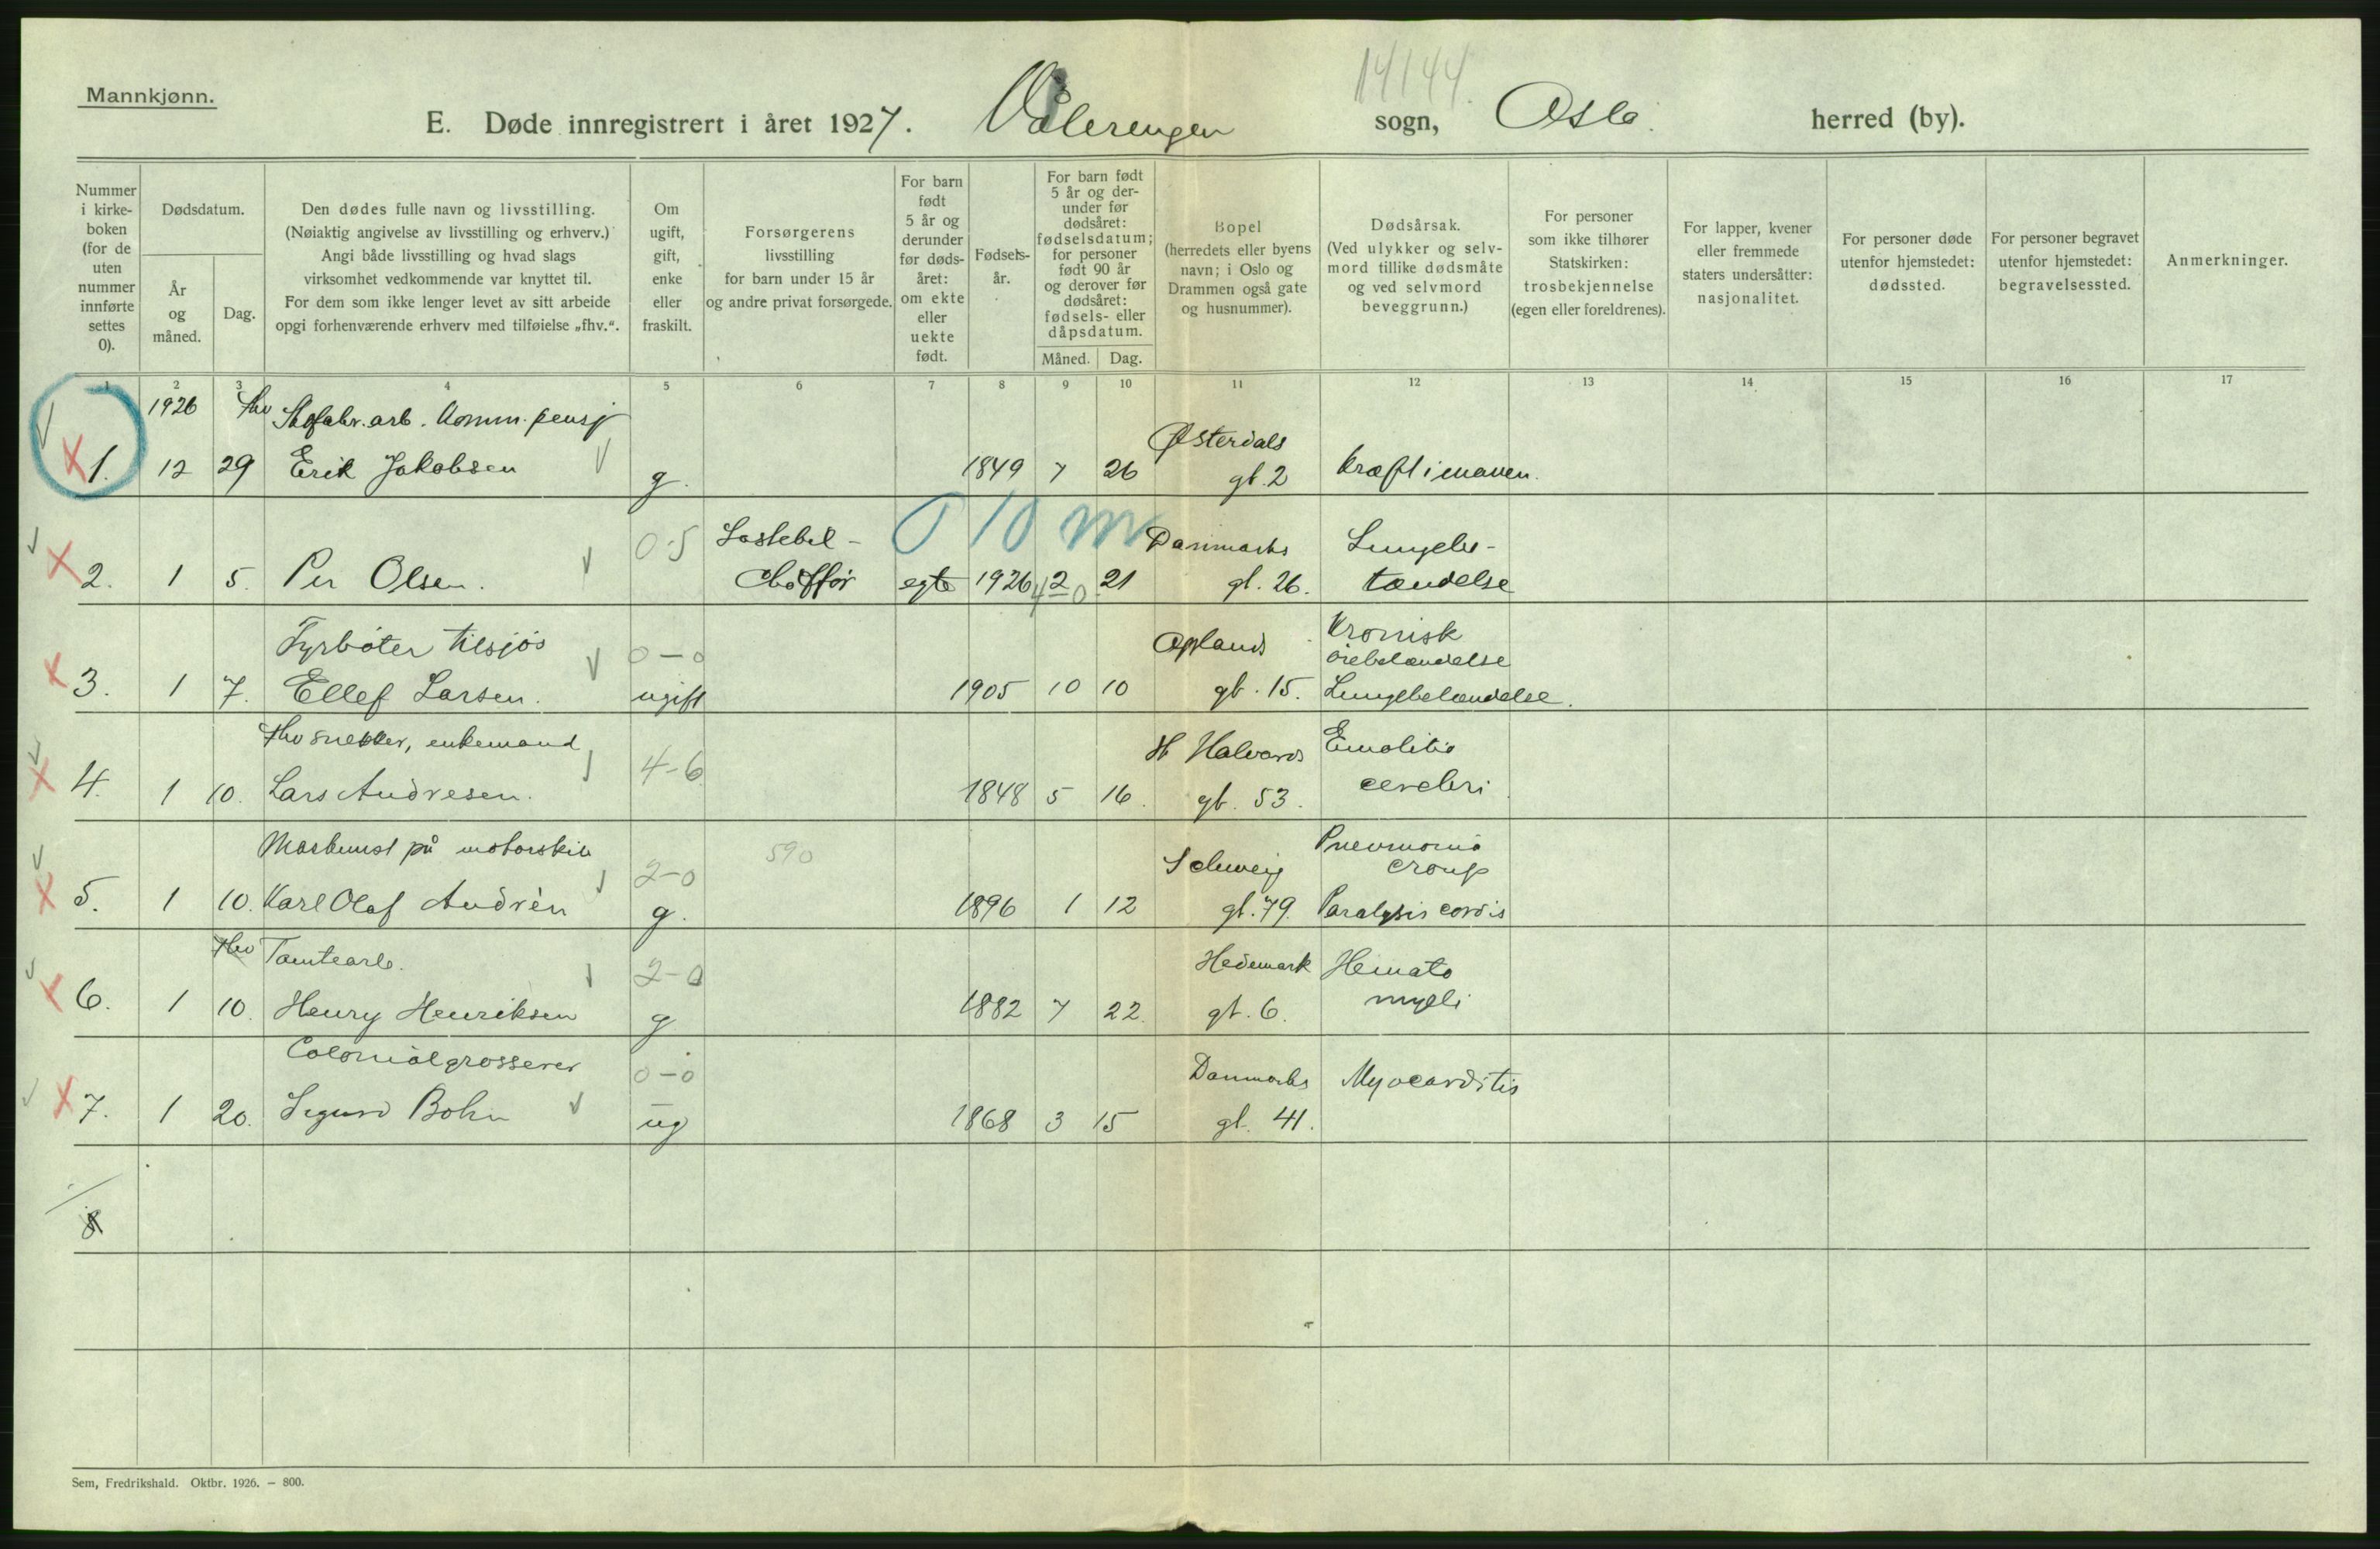 Mannkjønn.
14144.
E. Døde innregistrert i året 1927. Vålerengen sogn, Oslo. herred (by).
Nummer i kirkeboken (for de uten nummer innførte settes 0).
Dødsdatum.
År og måned.
Dag.
Den dødes fulle navn og livsstilling.
(Nøiaktig angivelse av livsstilling og erhverv.)
Angi både livsstilling og hvad slags
virksomhet vedkommende var knyttet til.
For dem som ikke lenger levet av sitt arbeide
opgi forhenværende erhverv med tilføielse „fhv.“.
Om ugift, gift, enke eller fraskilt.
Forsørgerens
livsstilling
for barn under 15 år
og andre privat forsørgede.
For barn født 5 år og derunder før dødsåret: om ekte eller uekte født.
Fødsels-
år.
For barn født
5 år og der-
under før
dødsåret:
fødselsdatum;
for personer
født 90 år
og derover før
dødsåret:
fødsels- eller
dåpsdatum.
Måned. Dag.
Bopel
(herredets eller byens
navn; i Oslo og
Drammen også gate
og husnummer).
Dødsårsak.
(Ved ulykker og selv-
mord tillike dødsmåte
og ved selvmord
beveggrunn.)
For personer
som ikke tilhører
Statskirken:
trosbekjennelse
(egen eller foreldrenes).
For lapper, kvener
eller fremmede
staters undersåtter:
nasjonalitet.
For personer døde
utenfor hjemstedet:
dødssted.
For personer begravet
utenfor hjemstedet:
begravelsessted.
Anmerkninger.
1 2 3 4 5 6 7 8 9 10 11 12 13 14 15 16 17
1926 fhv arb. Komm. pensj Østerdals
1. 12 29 Erik Jakobsen g. 1849 7 26 gt. 2 Kræft i maven.
0-5 Lastebil- 10 m Danmarks Lungebe-
2. 1 5. Per Olsen. chaffør egte 1926 2 21 gt. 26. tændelse
Fyrbøter tilsjøs 0-0 Oplands Kronisk
ørebetændelse
3. 1 7. Ellef Larsen. ugift 1905 10 10 gt. 15. Lungebetændelse.
fhv snekker, enkemand 4-6 St Halvards Emolitio
4. 1 10. Lars Andresen. 1848 5 16. gt. 53. cerebri
Maskinist på motorskib 2-0 590 Schweig Pneumonia
croup
5. 1 10. Karl Olaf Andrèn g. 1896 1 12 gt. 79. Paralysis cordis
fhv Tomtearb. 2-0 Hedemark Hemato
6. 1 10. Henry Henriksen g 1882 7 22. gt. 6. myeli
Colonialgrosserer 0-0 Danmarks Myocarditis
7. 1 20. Sigurd Bohn ug 1868 3 15 gt. 41.
8
Sem, Fredrikshald. Oktbr. 1926. — 800.